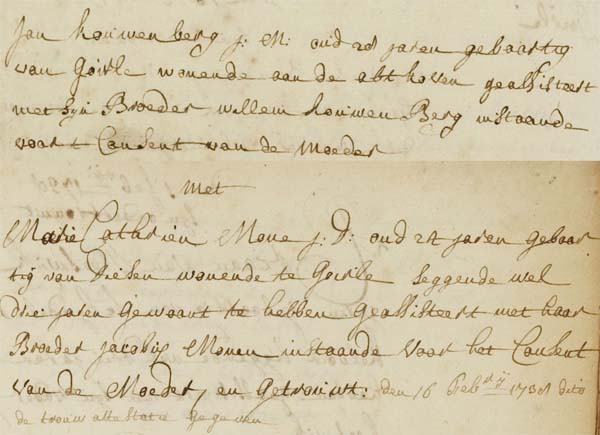 Jan kouwenberg j: M: oud 28 jaren geboortig
van Goirle wonende aan de abthoven geassisteert
met syn Broeder willem kouwen Berg instaande
voor t Consent van de moeder
met
Marie Cathrien Mone j: D: oud 24 jaren geboor
tig van Diesen wonende te Goirle seggende wel
drie jaren gewoont te hebben geassisteert met haar
Broeder jacobus Monen instaande voor het Consent
van de Moeder, en Getrouwt: den 16 Feb: dito
de trouw attestatie gegeven